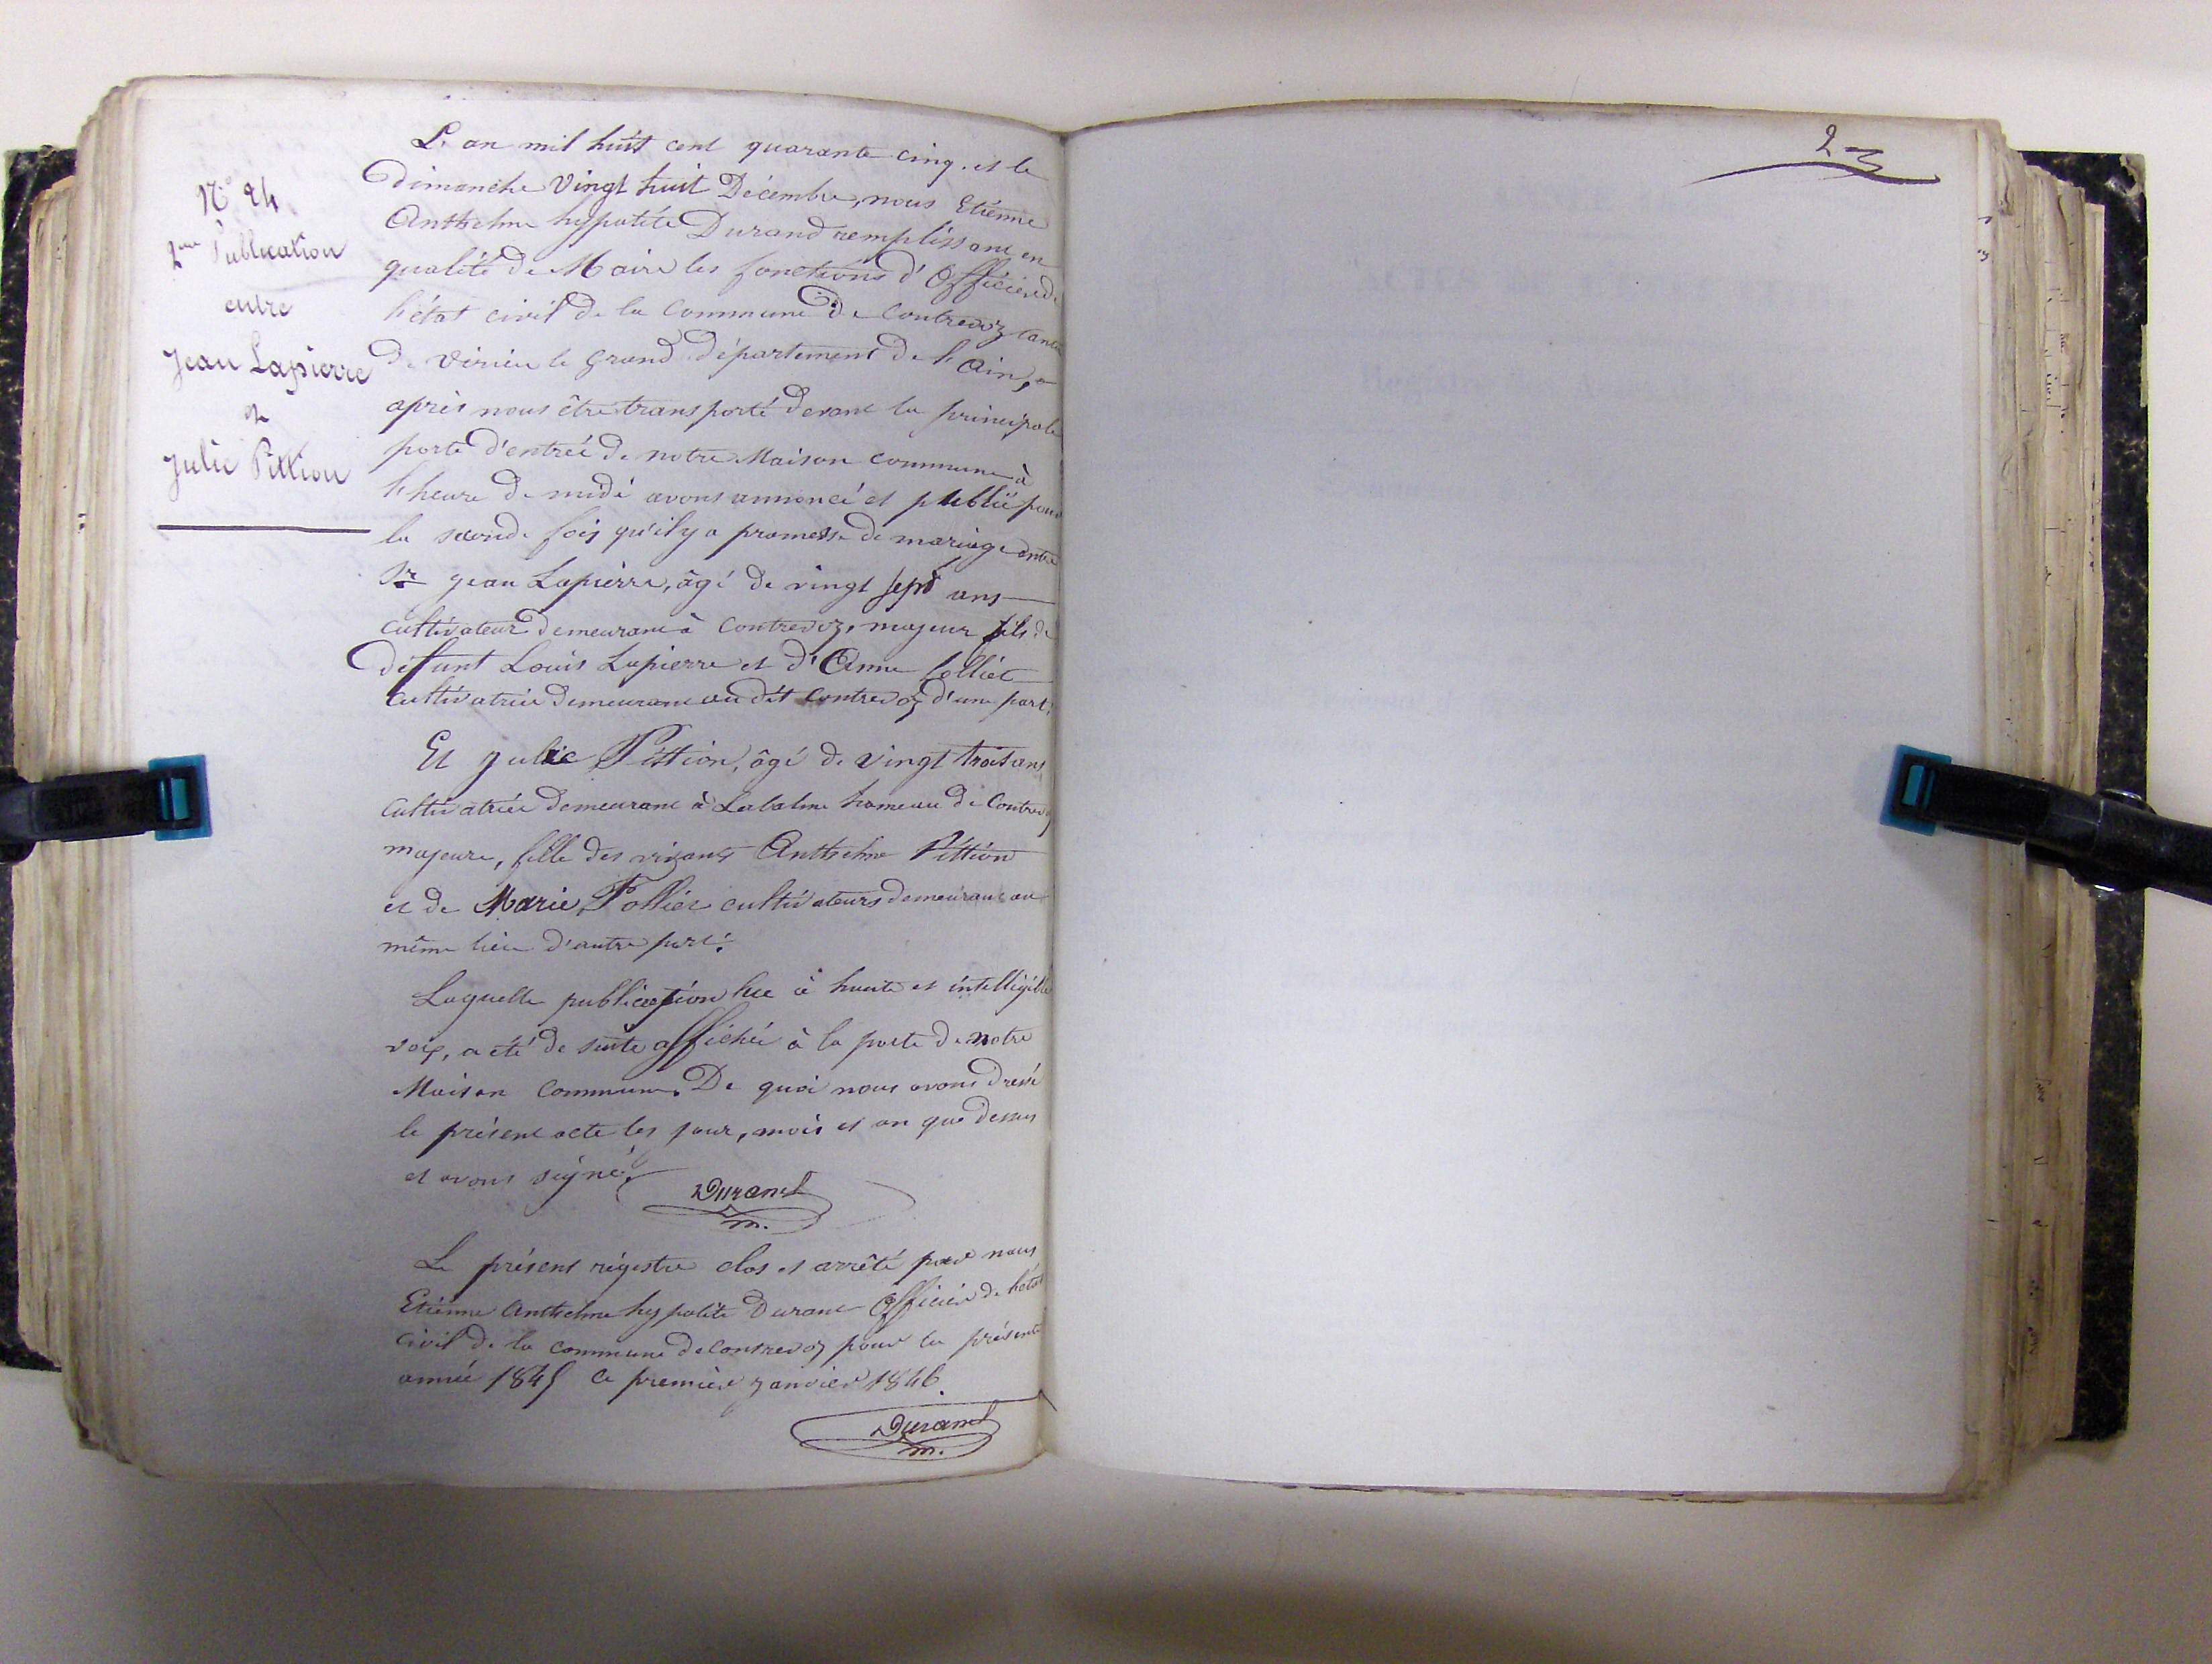 N° 24
2me Publication
entre
Jean Lapierre
et
Julie Pittion
L'an mil huit cent quarante cinq. et le
Dimanche Vingt huit Décembre, nous Etiénne
Anthelme hyppolite Durand remplissant en
qualité de Maire les fonctions d'Officier de
l'état civil de la Commune de Contrevoz canton
de Virieu le grand département de l'Ain,
après nous être transporté devant la principale
porte d'entrée de notre Maison commune à
l'heure de midi avons annoncé et publié pour
la seconde fois qu'il y a promesse de mariage entre
Sr jean Lapierre, âgé de vingt sept ans
cultivateur demeurant à Contrevoz, majeur fils de
défunt Louis Lapierre et d'Anne Collict
cultivatrice demeurant au dit Contrevoz d'une part.
Et julie Pittion, âgé de vingt trois ans
cultivatrice demeurant à Labalme hameau de Contrevoz
majeure, fille des vivants Anthelme Pittion
et de Marie Follict cultivateurs demeurant au
même lieu d'autre part.
Laquelle publication lue à haute et intelligible
voix, a été de suite affichée à la porte de notre
Maison Commune. De quoi nous avons dressé
le présent acte les jour, mois et an que dessus
et avons signé.
Durand
m.
Le présent régistre clos et arrêté par nous
Etiénne Anthelme hyppolite Durand Officier de l'état
civil de la commune de Contrevoz pour la présente
année 1845 ce premier janvier 1846.
Durand
m.